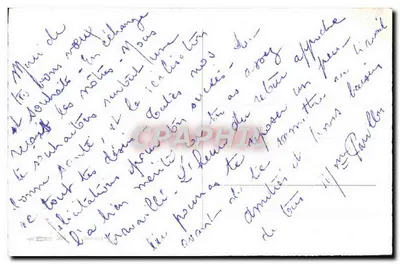 Merci de
tes bons vœux
et souhaits - En échange
reçois les nôtres - Nous
te souhaitons surtout une
bonne santé et la réalisation
de tout tes désirs. Toutes nos fé-
licitations pour ton succès -
l'a bien mérité tu as assez
travaillé - L'heure de la retraite approche
tu pourras te reposer un peu
avant de te remettre au travail
amitiés et bons baisers
de tous
CPAPHIL